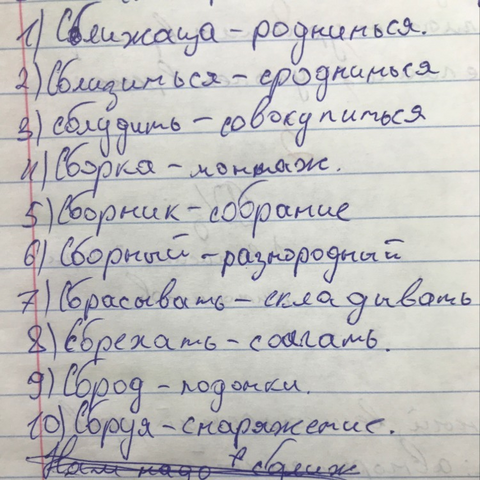 1) Сближаца - роднинься.
2) Сблизинься - сроднинься
3) сблудить - совокупиться
4) Сборка - монтаж.
5) Сборник - собрание
6) Сборный - разнородный
7) Сбрасывать - складывать
8) Сбрехать - солгать.
9) Сброд - подонки.
10) Сбруя - снаряжение.
Нам надо сближ